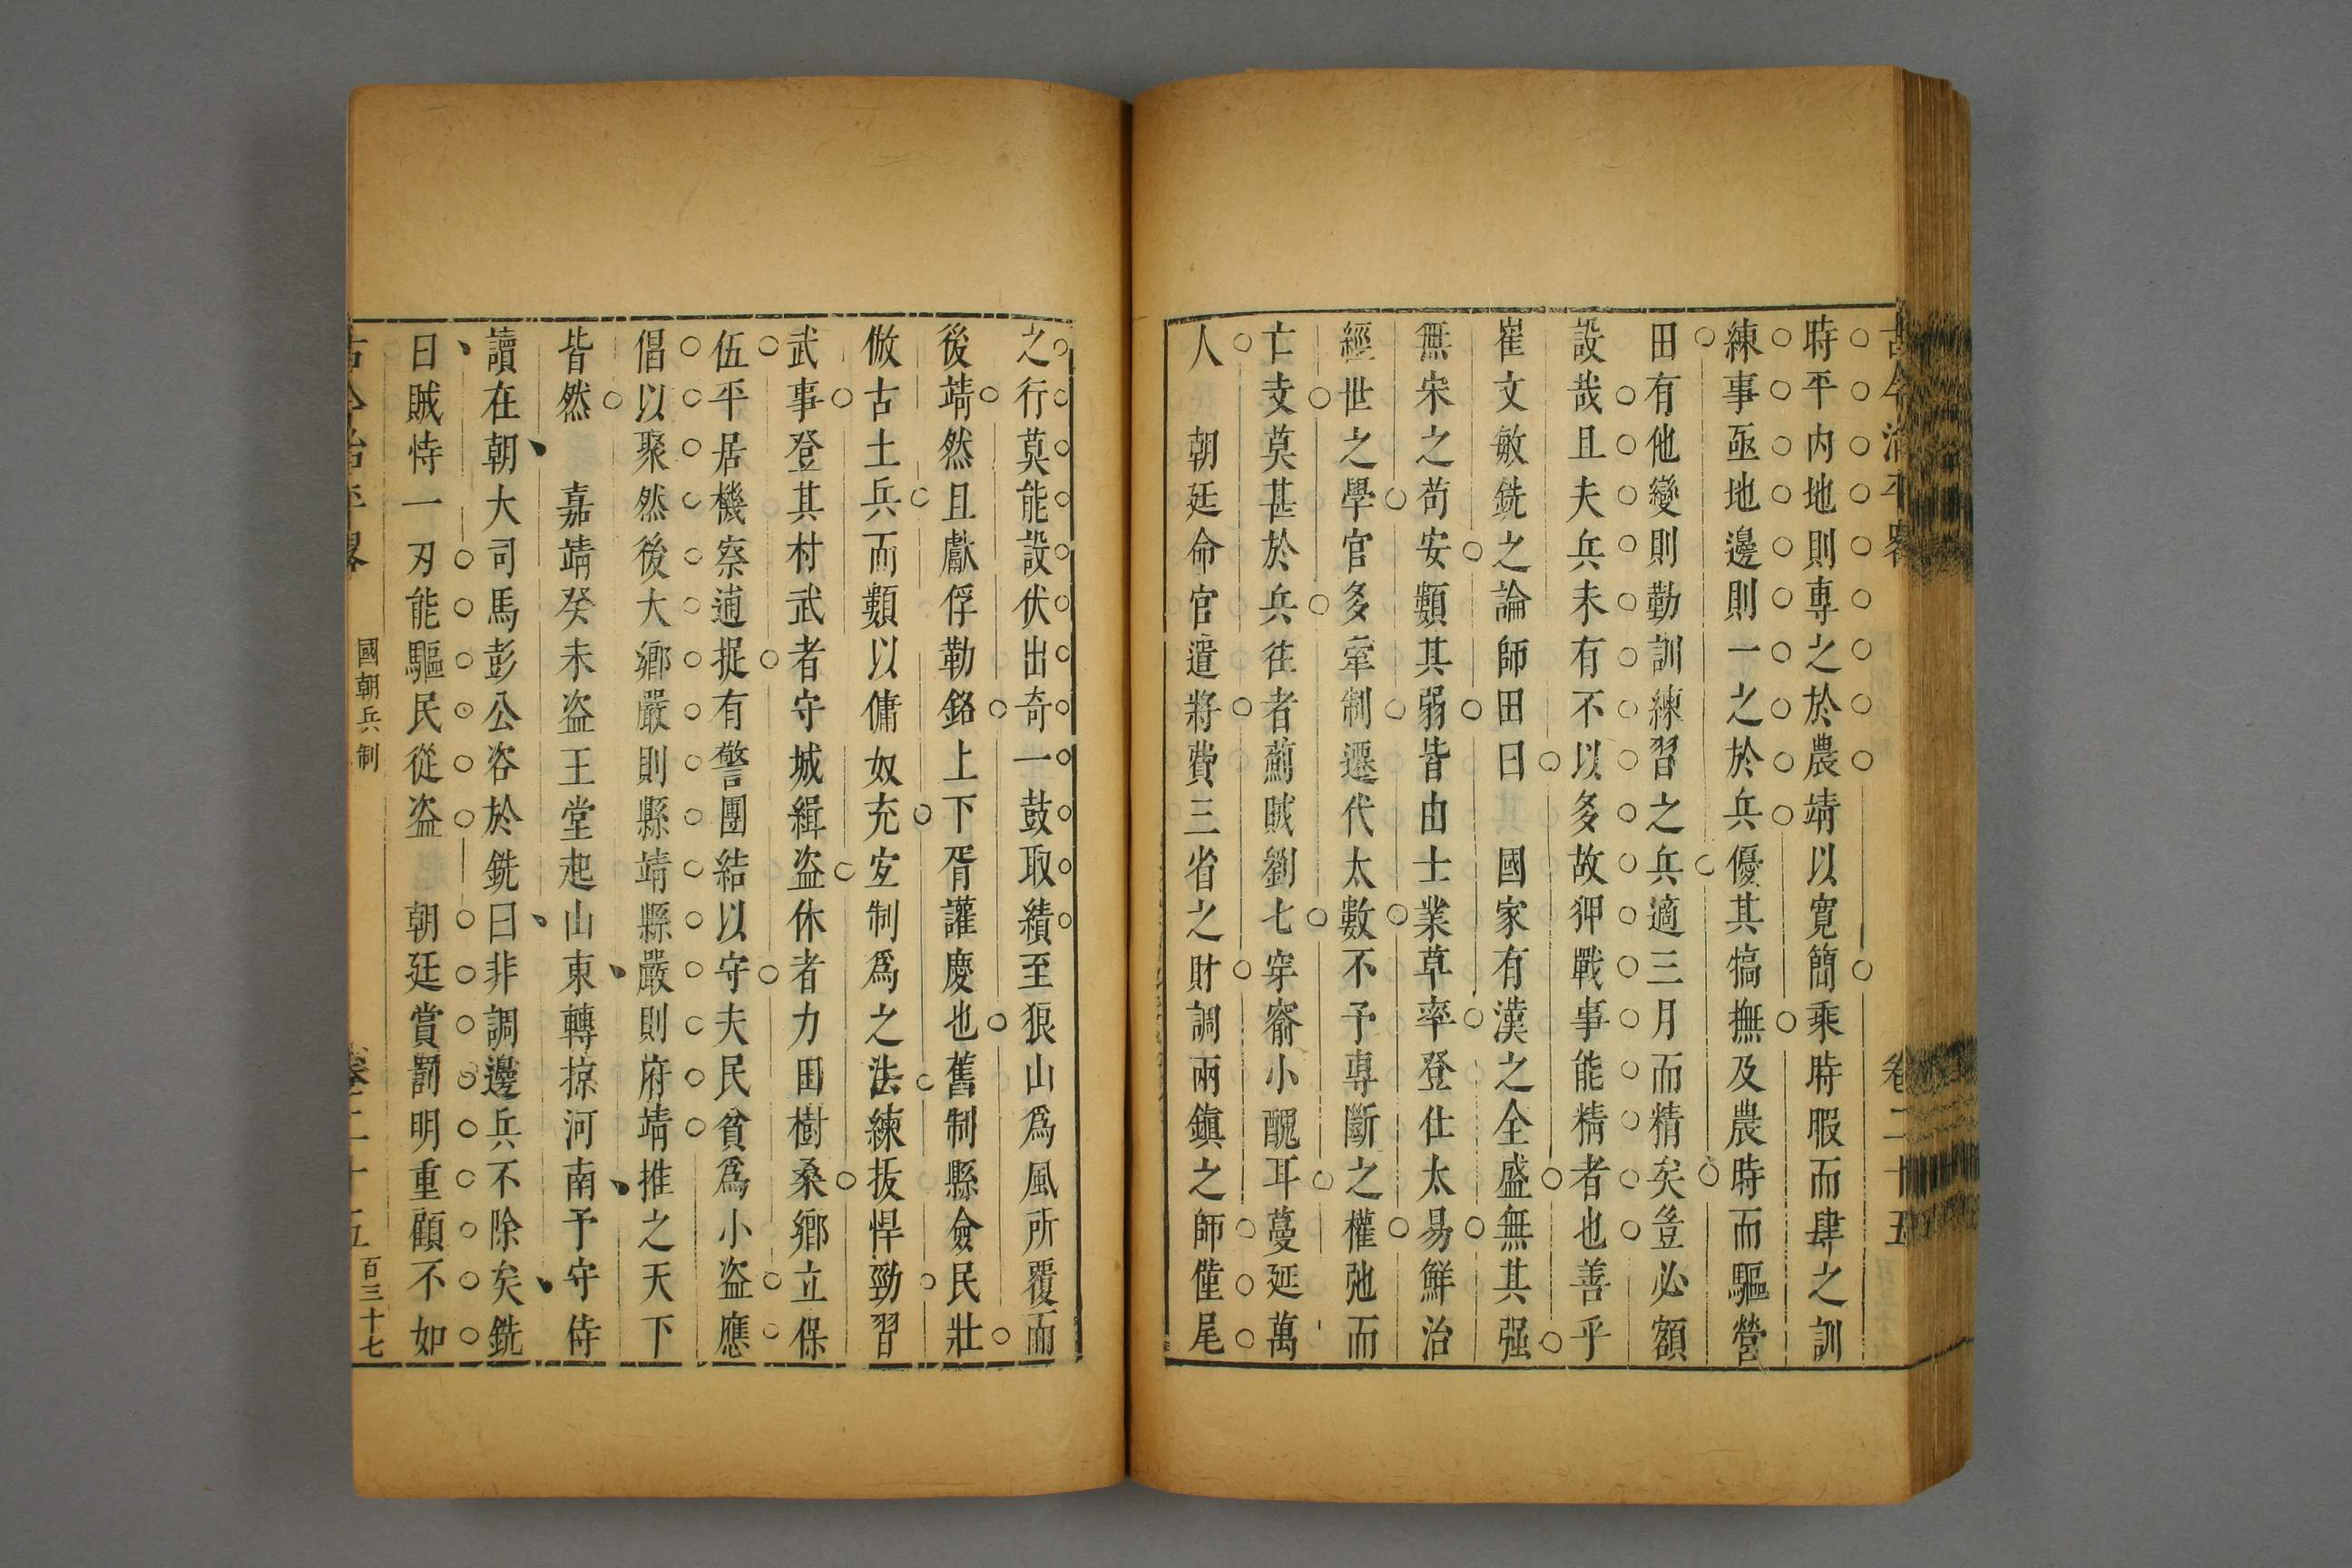 古今治平畧 卷二十五
時平内地則專之於農靖以寛簡乘時暇而肆之訓
練事亟地邊則一之於兵優其犒撫及農時而驅營
田有他變則勤訓練習之兵適三月而精矣豈必額
設哉且夫兵未有不以多故狎戰事能精者也善乎
崔文敏銑之論師田曰 國家有漢之全盛無其强
無宋之苟安類其弱皆由士業草率登仕太易鮮治
經世之學官多牽制遷代太數不予專斷之權弛而
亡支莫甚於兵徃者薊賊劉七穿窬小醜耳蔓延萬
人 朝廷命官遣將費三省之財調兩鎮之師僅尾
之行莫能設伏出奇一鼓取績至狼山爲風所覆而
後靖然且獻俘勒銘上下胥讙慶也舊制縣僉民壯
倣古土兵而類以傭奴充宐制爲之法練抜悍勁習
武事登其村武者守城緝盗休者力田樹桑鄉立保
伍平居機察逋捉有警團結以守夫民貧爲小盗應
倡以聚然後大鄉嚴則縣靖縣嚴則府靖推之天下
皆然 嘉靖癸未盗王堂起山東轉掠河南予守侍
讀在朝大司馬彭公咨於銑曰非調邊兵不除矣銑
曰賊恃一刃能驅民從盗 朝廷賞罰明重顧不如
古今治平畧 國朝兵制 卷二十五 百三十七